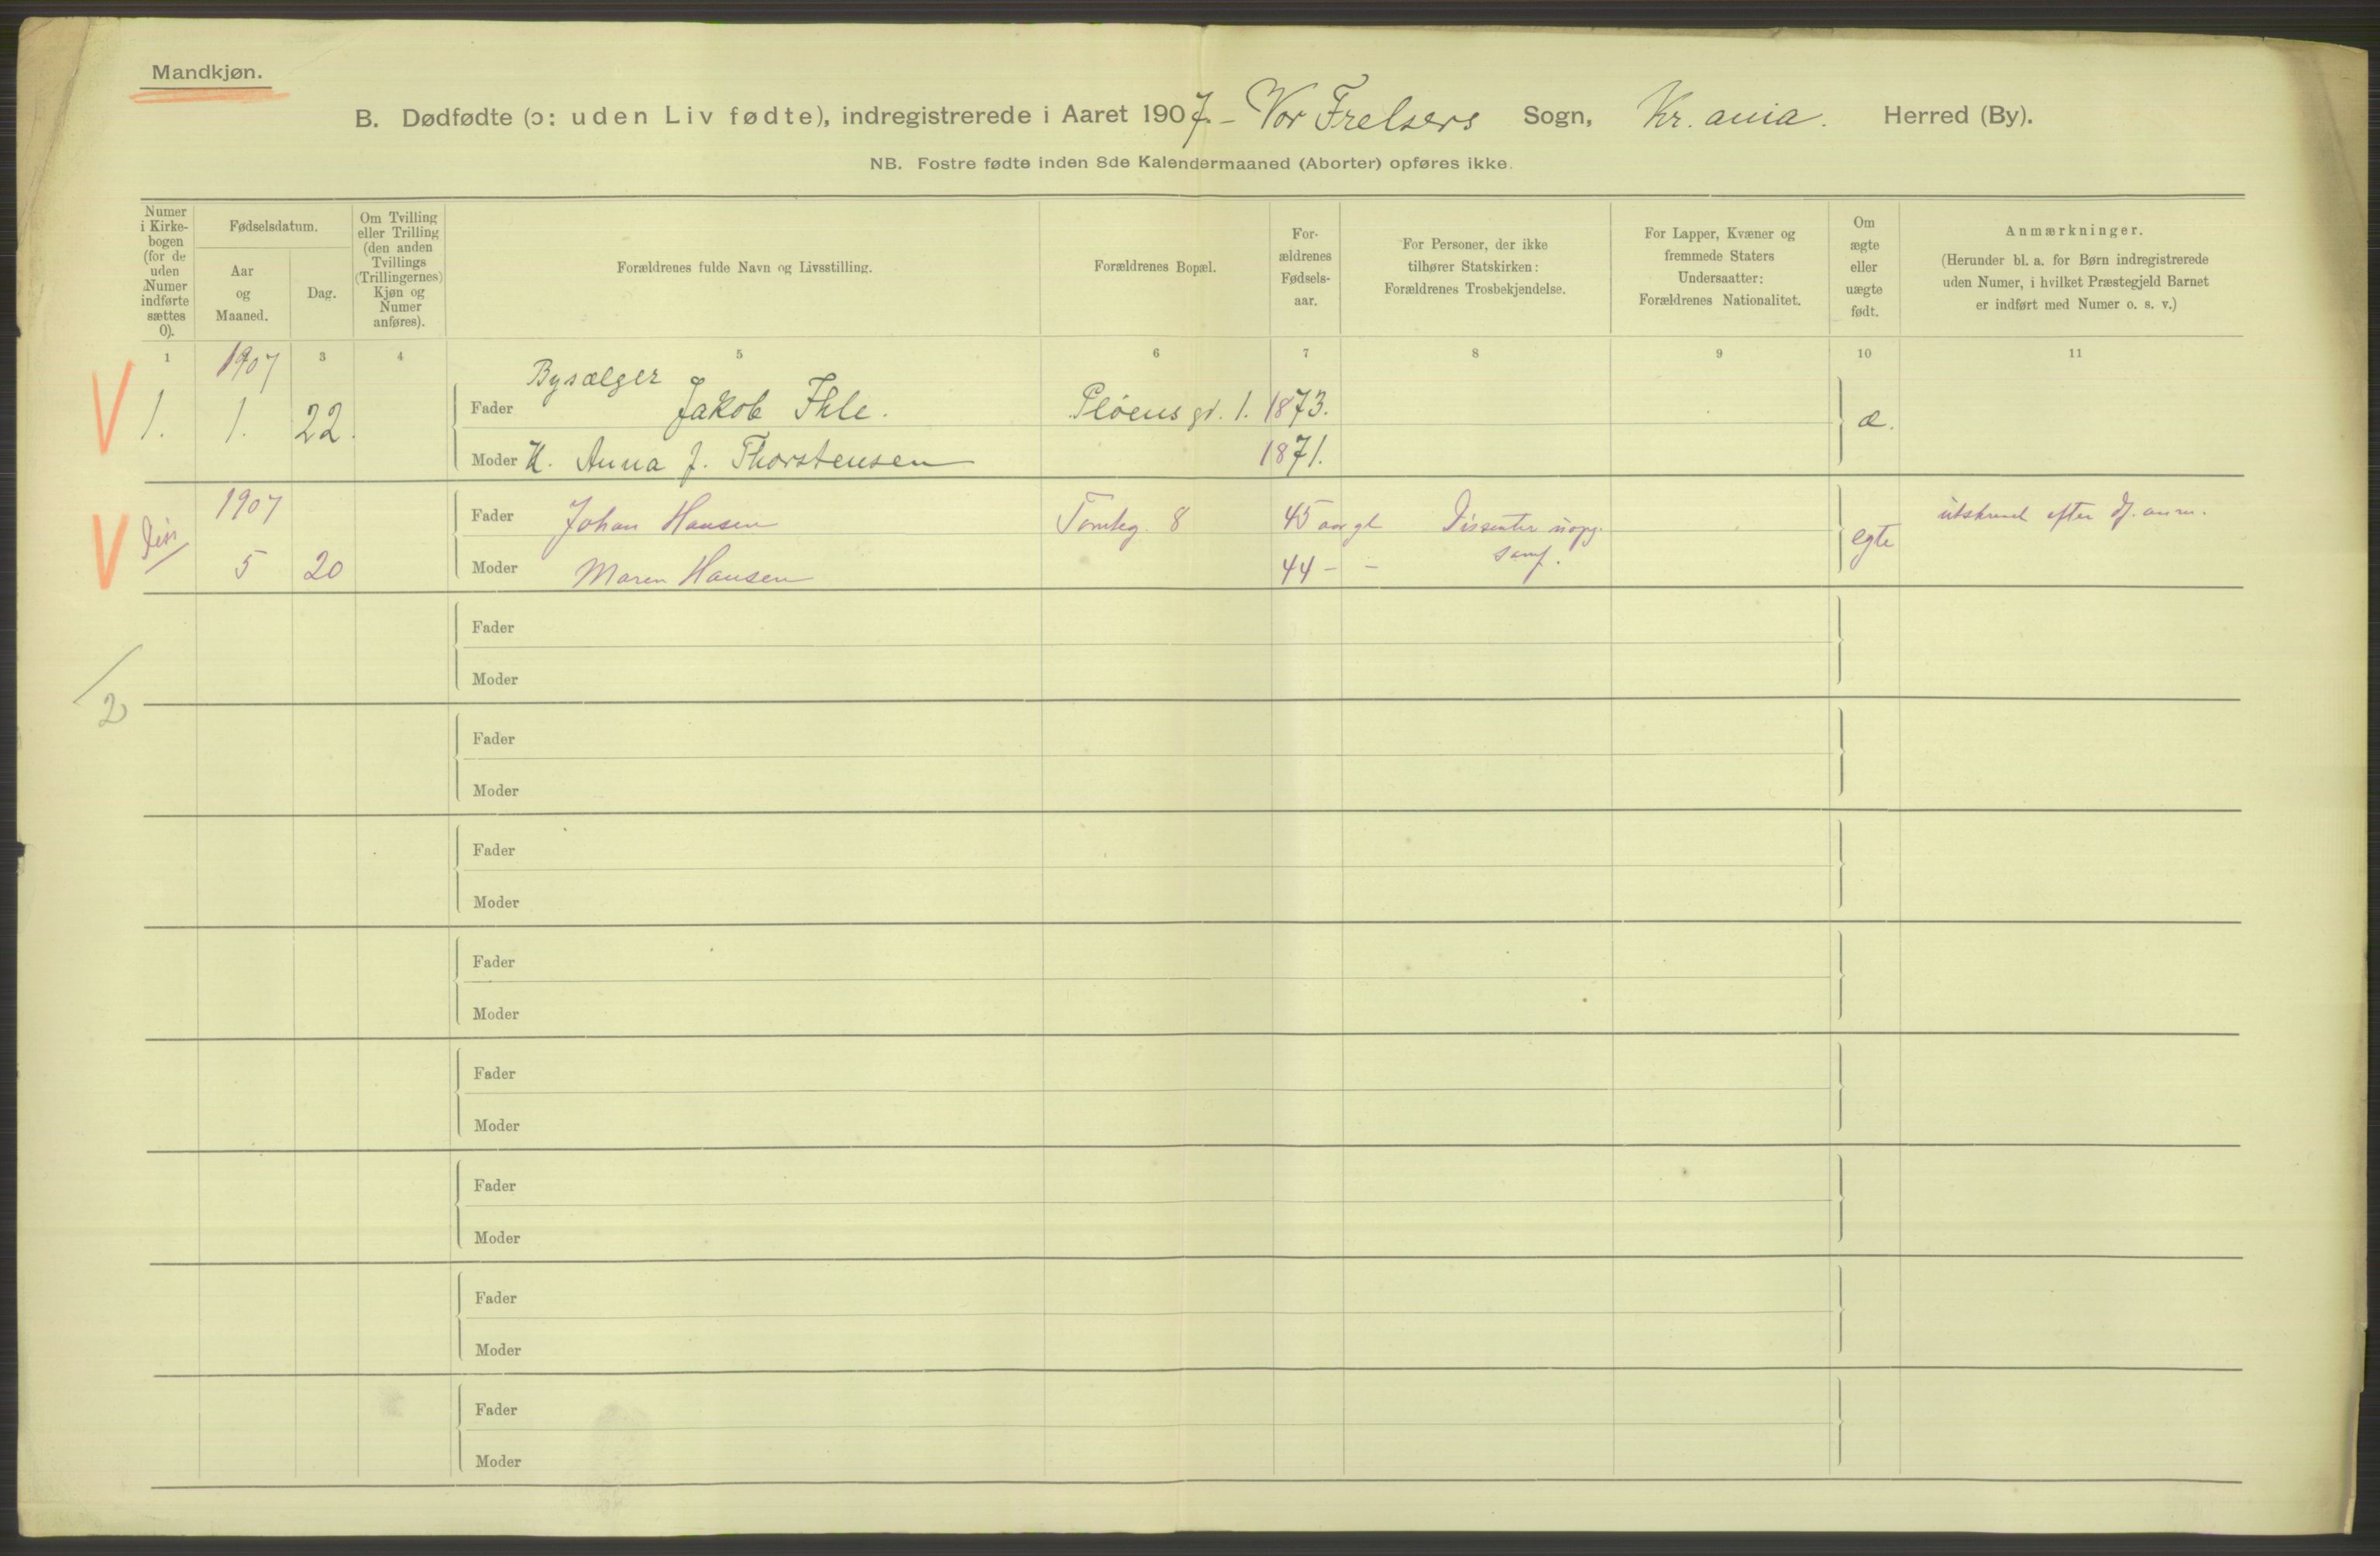 Mandkjøn.
B. Dødfødte (ɔ: uden Liv fødte), indregistrerede i Aaret 1907. – Vor Frelsers Sogn, Kr. ania. Herred (By).
NB. Fostre fødte inden 8de Kalendermaaned (Aborter) opføres ikke.
Numer
i Kirke-
bogen
(for de
uden
Numer
indførte
sættes
0).
Fødselsdatum.
Aar
og
Maaned.
Dag.
Om Tvilling
eller Trilling
(den anden
Tvillings
(Trillingernes)
Kjøn og
Numer
anføres).
Forældrenes fulde Navn og Livsstilling.
Forældrenes Bopæl.
For-
ældrenes
Fødsels-
aar.
For Personer, der ikke
tilhører Statskirken:
Forældrenes Trosbekjendelse.
For Lapper, Kvæner og
fremmede Staters
Undersaatter:
Forældrenes Nationalitet.
Om
ægte
eller
uægte
født.
Anmærkninger.
(Herunder bl. a. for Børn indregistrerede
uden Numer, i hvilket Præstegjeld Barnet
er indført med Numer o. s. v.)
1 3 4 5 6 7 8 9 10 11
1907
Bysælger
1. 1. 22. Fader Jakob Ihle. Pløens gd. 1. 1873. æ.
Moder K. Anna J. Thorstensen 1871.
1907 Fader Johan Hansen Tomteg. 8 45 aar gl Dissenter efter
samf. egte
5 20 Moder Maren Hansen 44 – –
Fader
Moder
2
Fader
Moder
Fader
Moder
Fader
Moder
Fader
Moder
Fader
Moder
Fader
Moder
Fader
Moder